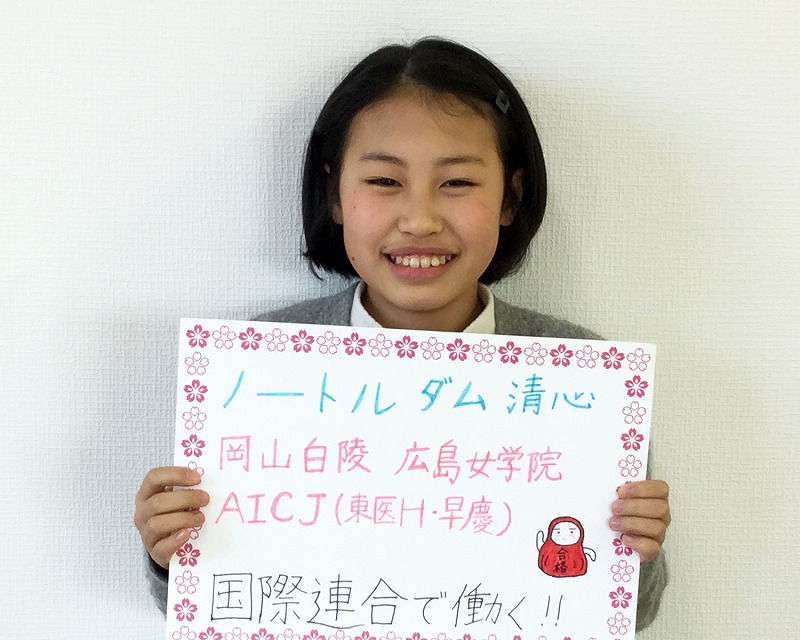 ノートルダム清心
岡山白陵 広島女学院
AICJ(東医H・早慶)
合格
国際連合で働く!!